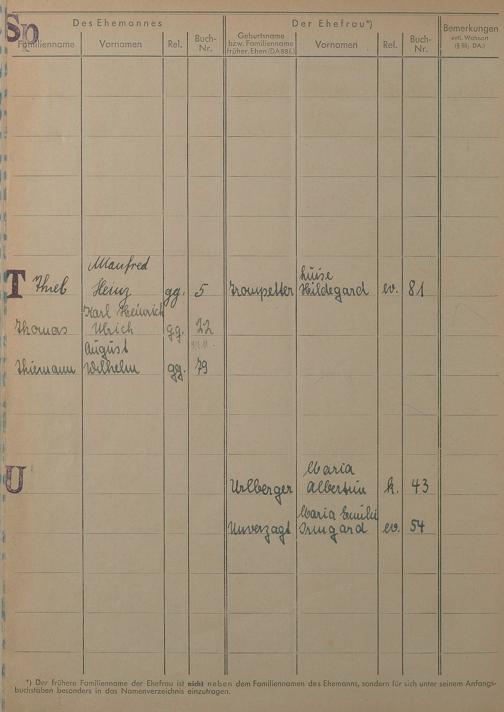 Sp
Des Ehemannes
Der Ehefrau*)
Bemerkungen
Familienname
Vornamen
Rel.
Buch-
Nr.
Geburtsname
bzw. Familienname
früher. Ehen (DA 88f.)
Vornamen
Rel.
Buch-
Nr.
T
Manfred
Luise
Thieb
Heinz
gg.
5
Trompetter
Hildegard
ev.
81
Karl Heinrich
Thomas
Ulrich
gg.
22
August
Thiemann
Wilhelm
gg.
79
U
Maria
Urlberger
Albertin
k.
43
Maria Emilie
Unverzagt
Irmgard
ev.
54
*) Der frühere Familienname der Ehefrau ist nicht neben dem Familiennamen des Ehemanns, sondern für sich unter seinem Anfangs-
buchstaben besonders in das Namenverzeichnis einzutragen.